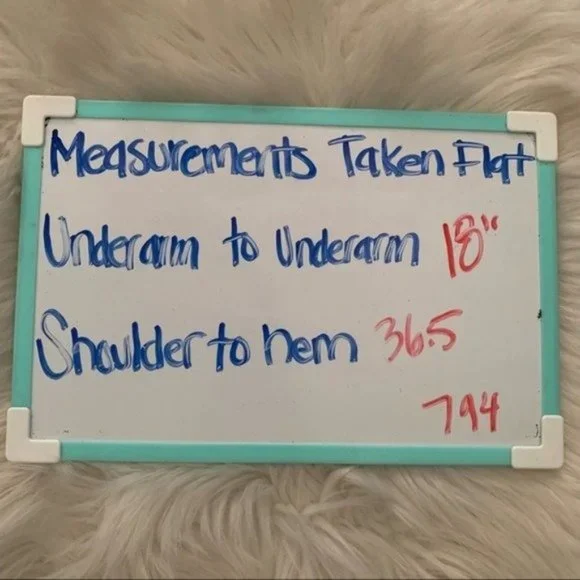 Measurements Taken Flat
Underarm to Underarm 18"
Shoulder to hem 36.5
794